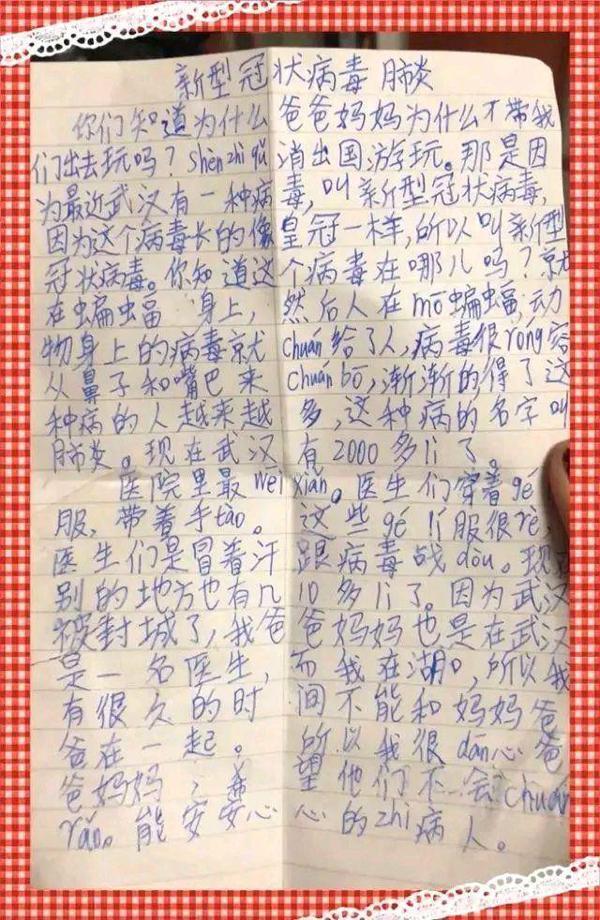 新型冠状病毒肺炎
你们知道为什么爸爸妈妈为什么才带我
们出去玩吗？shèn zhì qǔ消出国游玩。那是因
为最近武汉有一种病毒，叫新型冠状病毒，
因为这个病毒长的像皇冠一样，所以叫新型
冠状病毒。你知道这个病毒在哪儿吗？就
在蝙蝠身上，然后人在mō蝙蝠，动
物身上的病毒就chuán给了人，病毒很róng容
从鼻子和嘴巴来chuán bō，渐渐的得了这
种病的人越来越多，这种病的名字叫
肺炎。现在武汉有2000多lì了。
医院里最wēi xiǎn。医生们穿着gé
服，带着手tào。这些gé lí服很rè，
医生们是冒着汗跟病毒战dòu。现
别的地方也有几10多lì了。因为武汉
被封城了，我爸爸妈妈也是在武汉
是一名医生，而我在湖口，所以我
有很久的时间不能和妈妈爸
爸在一起。所以我很dān心爸
爸妈妈，希望他们不会chuán
rǎn。能安安心心的zhì病人。